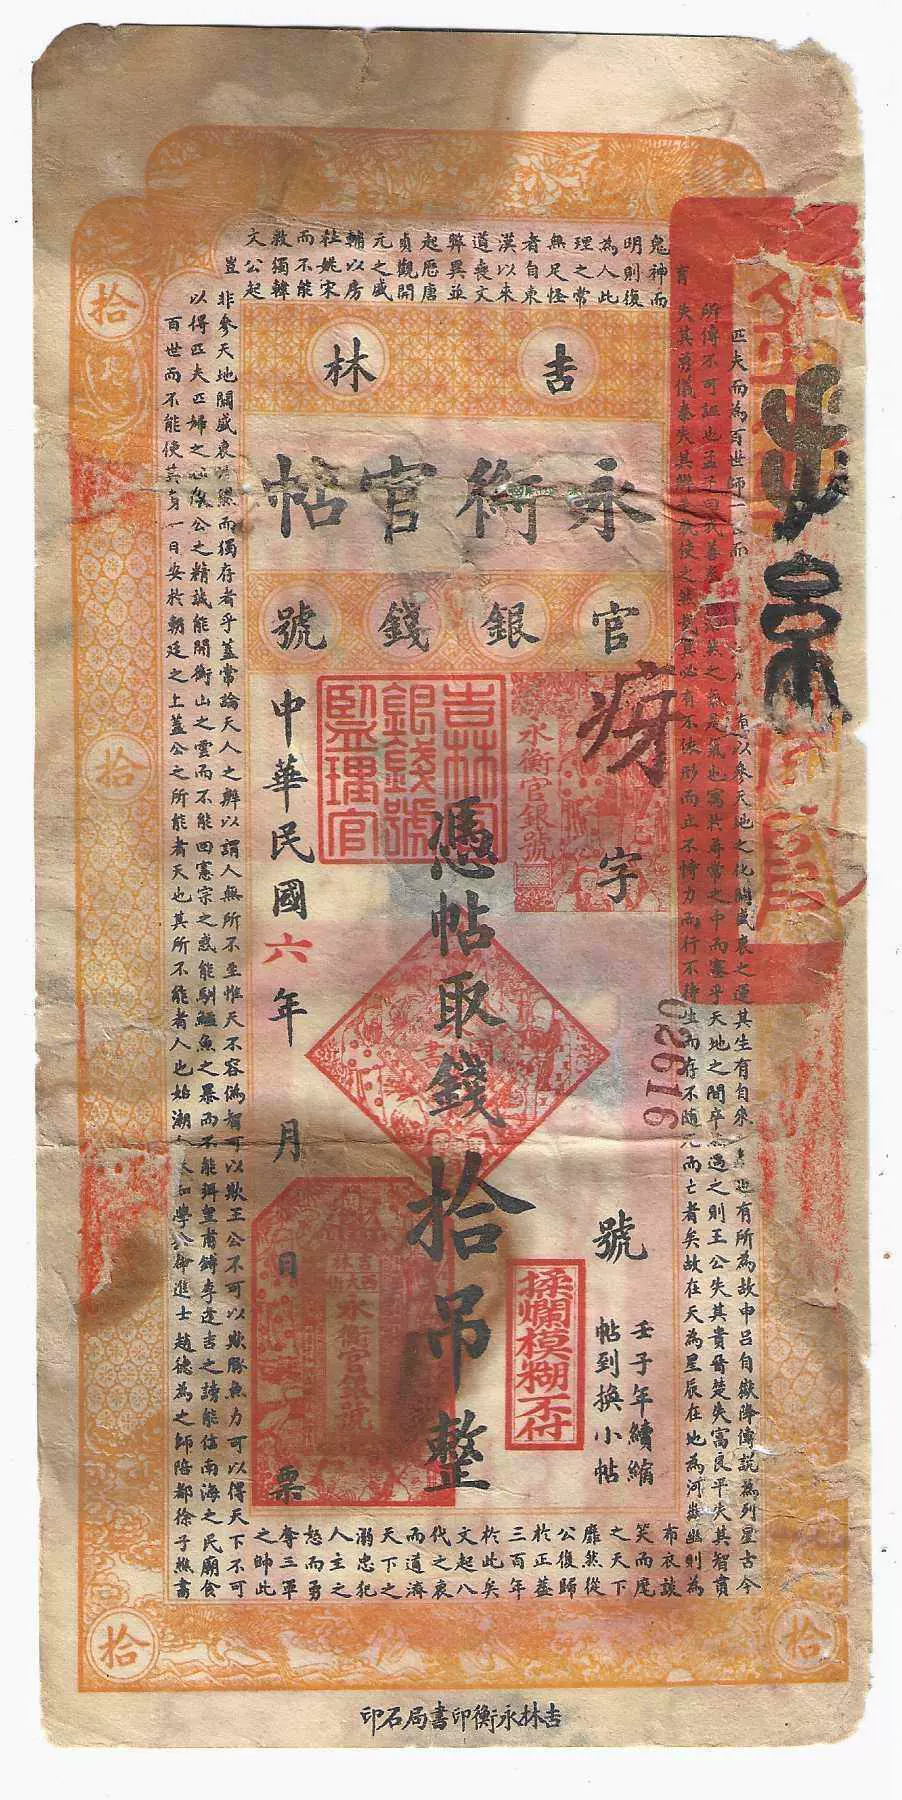 吉林
永衡官帖
官銀錢號
拾
拾
拾
拾
疨字
91920
號
壬子年續繪
帖到換小帖
憑帖取錢拾吊整
中華民國六年 月 日票
吉林官銀錢號監理官
永衡官銀號
揉爛模糊不付
匹夫而為百世師一 而
有以參天地之化關盛衰之運其生有自來 也有所為故申呂自嶽降傅說為列星古今
所傳不可誣也孟子曰我善養 之氣是氣也寓於尋常之中而塞乎天地之間卒 遇之則王公失其貴晉楚失富良平失其智賁
育失其勇儀秦失其辯 使之然哉其必有不依形而立不恃力而行不待生而存不隨死而亡者矣故在天為星辰在地為河嶽幽則為
鬼神而
明則復
為人此
理之常
無足怪
者自東
漢以來
道喪文
弊異並
起歷唐
貞觀開
元之盛
輔以房
杜姚宋
而不能
救獨韓
文公起
布衣談
笑而麾
之天下
靡然從
公復歸
於正蓋
三百年
於此矣
文起八
代之衰
而道濟
天下之
溺忠犯
人主之
怒而勇
奪三軍
之帥此
豈非參天地關盛衰浩然而獨存者乎蓋嘗論天人之辨以謂人無所不至惟天不容偽智可以欺王公不可以欺豚魚力可以得天下不可
以得匹夫匹婦之心故公之精誠能開衡山之雲而不能回憲宗之惑能馴鱷魚之暴而不能弭皇甫鎛李逢吉之謗能信南海之民廟食
百世而不能使其身一日安於朝廷之上蓋公之所能者天也其所不能者人也始潮人未知學公命進士趙德為之師陪都徐子 書
吉林永衡印書局石印